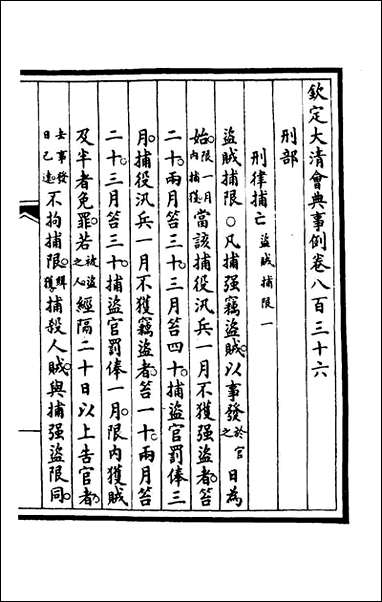 欽定大清會典事例卷八百三十六
刑部
刑律捕亡盜賊捕限一
盜賊捕限○凡捕强竊盜賊以事發於官之日為
始限一月內捕獲當該捕役汛兵一月不獲强盜者笞
二十兩月笞三十三月笞四十捕盜官罰俸三
月捕役汛兵一月不獲竊盜者笞一十兩月笞
二十三月笞三十捕盜官罰俸一月限內獲賊
及半者免罪若被盜之人經隔二十日以上告官者
去事發日已遠不拘捕限緝獲捕殺人賊與捕强盜限同